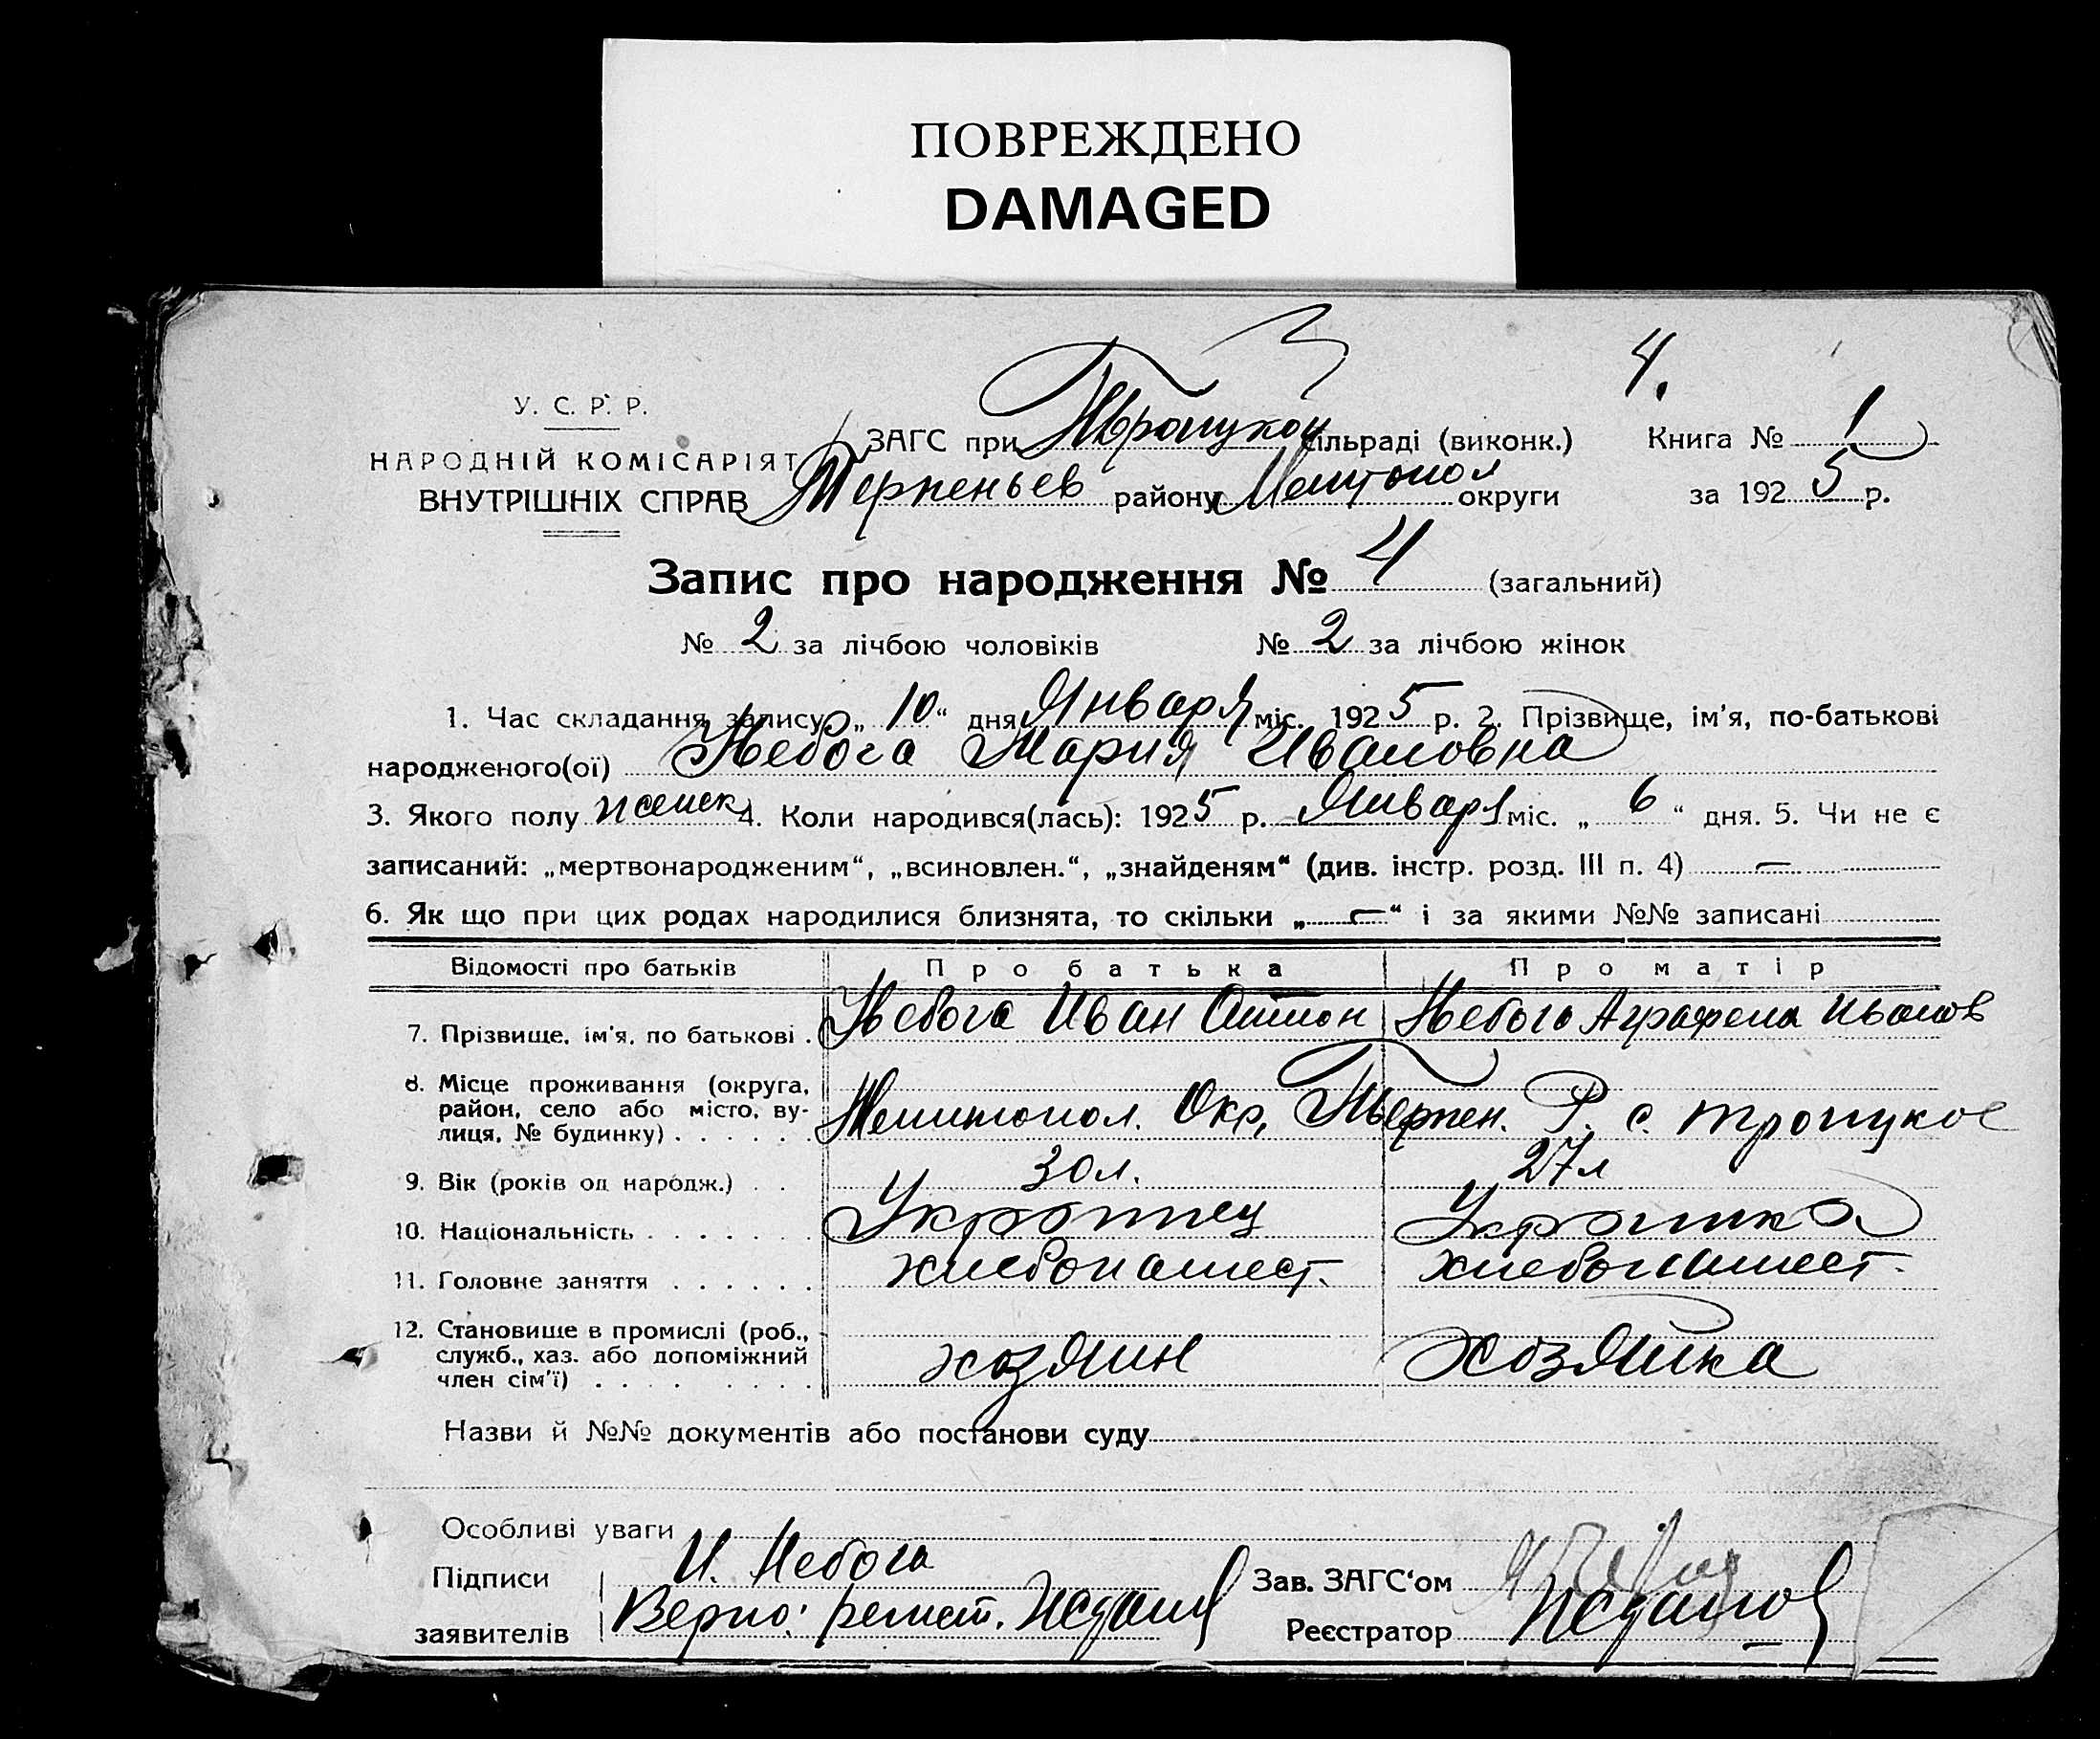 ПОВРЕЖДЕНО
DAMAGED
4.
У. С. Р. Р.
НАРОДНІЙ КОМІСАРІЯТ
ВНУТРІШНІХ СПРАВ
ЗАГС при Троицкой сільраді (виконк.) Книга № 1
Терпеньев району Мелитопол округи за 1925 р.
Запис про народження № 4 (загальний)
№ 2 за лічбою чоловіків № 2 за лічбою жінок
1. Час складання запису „10“ дня Января міс. 1925 р. 2. Прізвище, ім'я, по-батькові
народженого(ої) Небога Мария Ивановна
3. Якого полу женск 4. Коли народився(лась): 1925 р. Января міс. „6“ дня. 5. Чи не є
записаний: „мертвонародженим“, „всиновлен.“, „знайденям“ (див. інстр. розд. III п. 4) —
6. Як що при цих родах народилися близнята, то скільки „—“ і за якими №№ записані
Відомості про батьків Про батька Про матір
7. Прізвище, ім'я, по батькові . Небога Иван Антон Небога Аграфена Иванов
8. Місце проживання (округа, район, село або місто, вулиця, № будинку) . . . . . . Мелитопол. Окр, Терпен. Р. с. Троицкое
9. Вік (років од народж.) . . 30 л. 27 л
10. Національність . . . . . . . Украинец Украинка
11. Головне заняття . . . . . . Хлебопашест. Хлебопашест.
12. Становище в промислі (роб., служб., хаз. або допоміжний член сім'ї) . . . . . . . . хозяин хозяйка
Назви й №№ документів або постанови суду
Особливі уваги
Підписи И. Небога Зав. ЗАГС'ом
заявителів Верно: Реєстратор